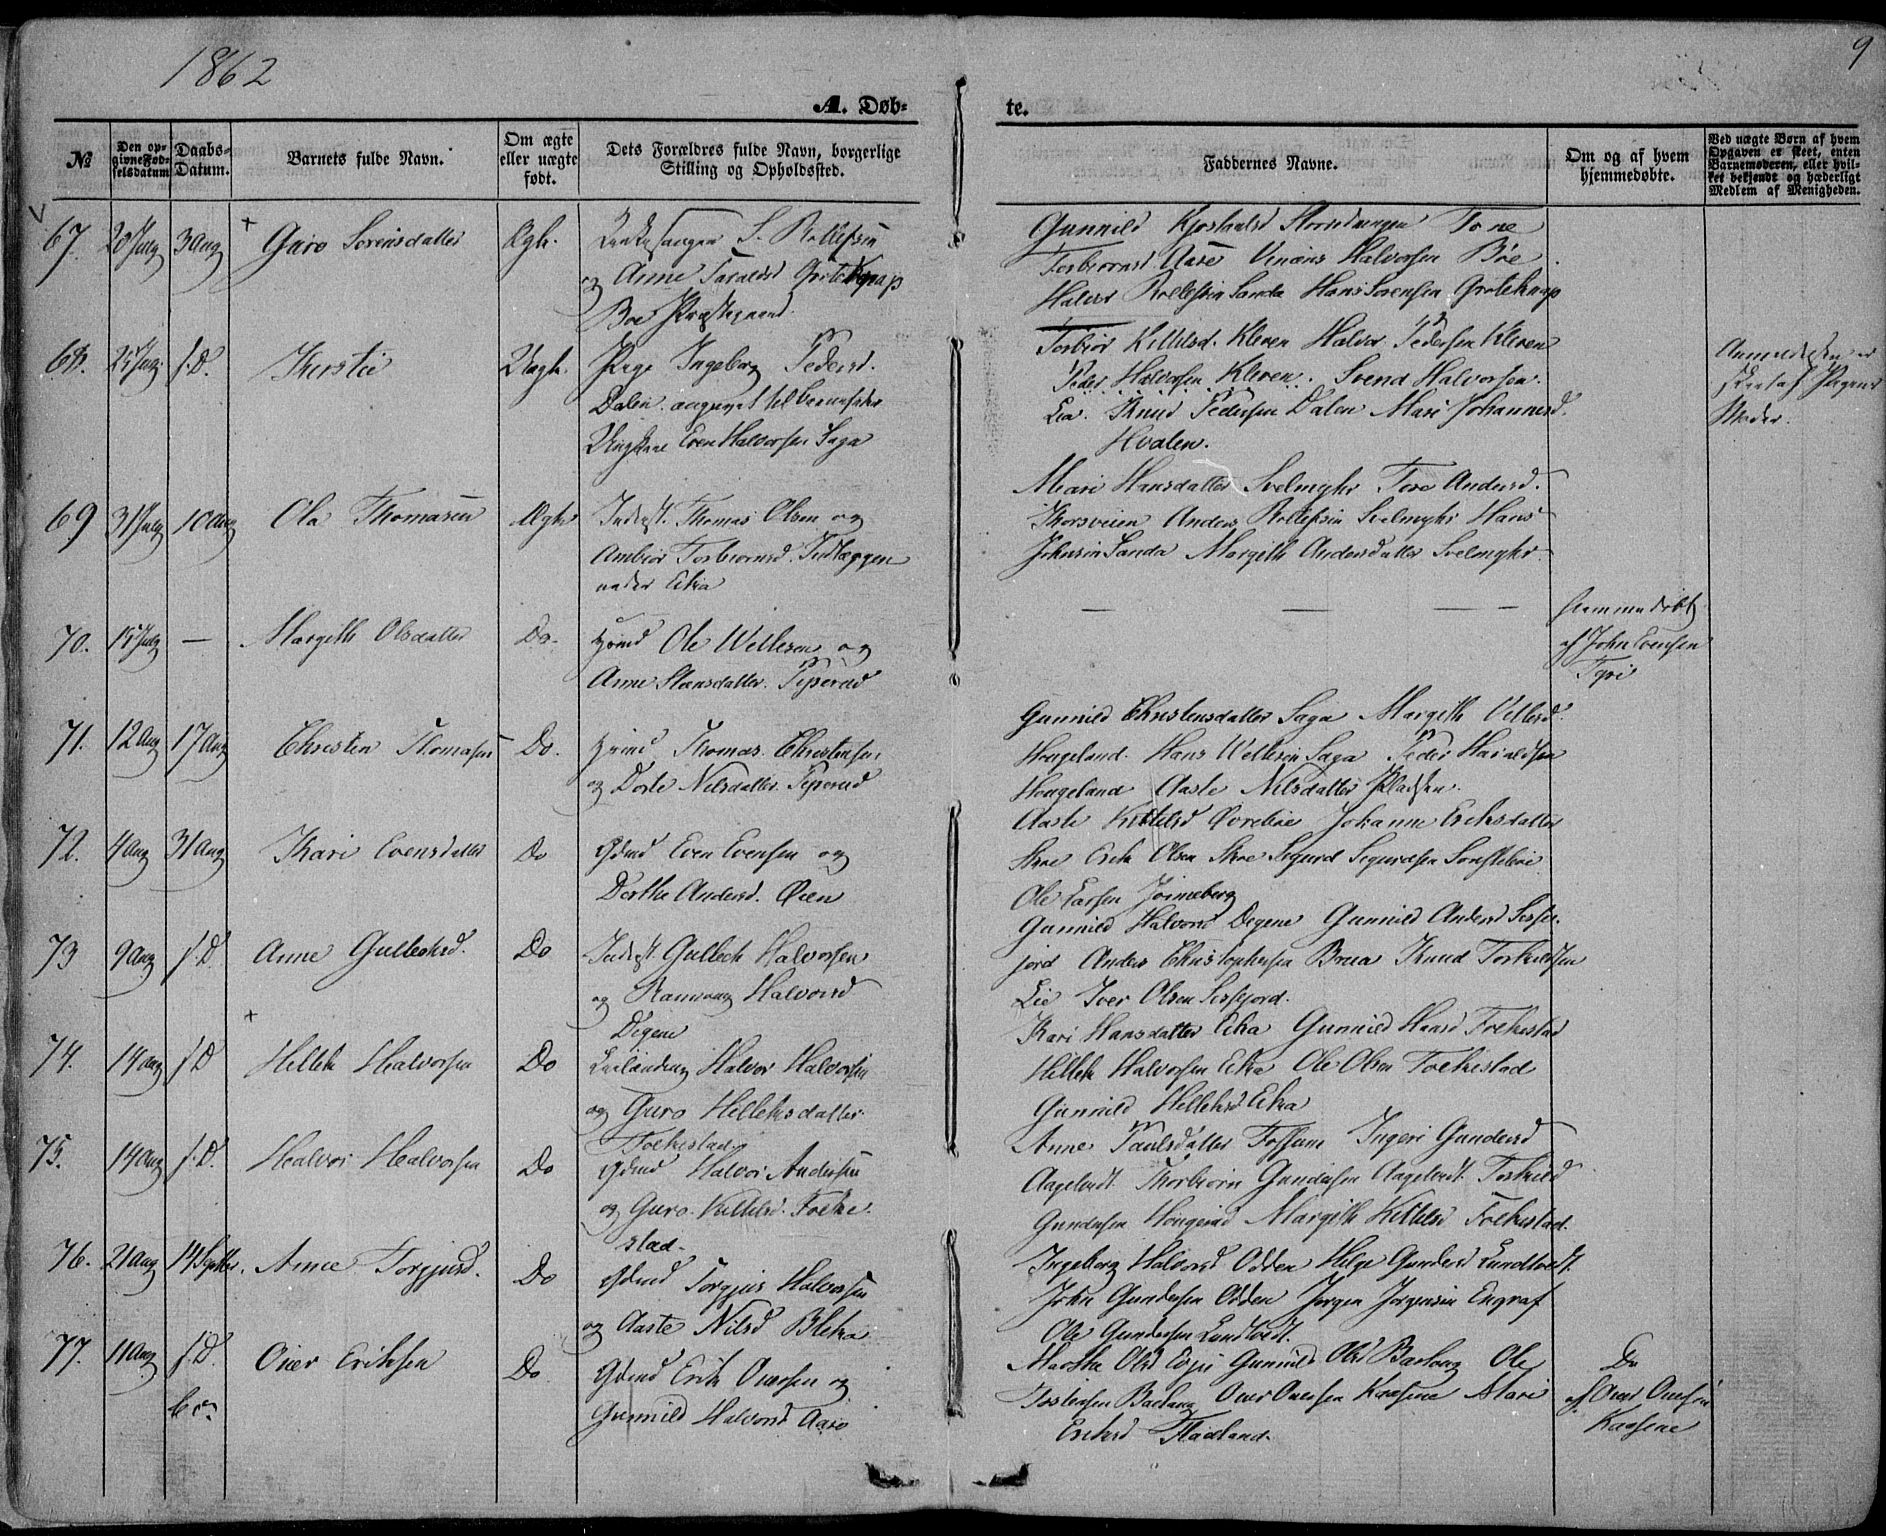 1862
9
A. Døb-
te.
№
Den op-
givne Fød-
selsdatum
Daabs-
Datum.
Barnets fulde Navn.
Om ægte
eller uægte
født.
Dets Forældres fulde Navn, borgerlige
Stilling og Opholdssted.
Faddernes Navne.
Om og af hvem
hjemmedøbte.
Ved uægte Børn af hvem
Opgaven er skeet, enten
Barnemoderen, eller hvil-
ket bekjendt og hæderligt
Medlem af Menigheden.
67. 20 July 3 Aug Guro Sorensdatter Ægte. Kirkesanger S. Rollefsen
og Anne Taraldsd Groteknap
Boe Præstegaard.
Gunnild Tone
Torbiørnsd. Aase Halvorsen Bøe
Halvor Rollefsen Sanda Hans Sorensen Groteknap
68. 25 July f. D. Kirstie Uægte. Pige Ingeborg Pedersd.
Dalen. angivet til barnefader
Ungkarl Even Halvorsen Saga
Torbiør Kittelsd. Kleven Halvor Pedersen Kleven
Peder Halvorsen Kleven. Svend Halvorsen
Lia. Knud Pedersen Dalen Mari Johannesd.
Hvalen.
Anmeldelsen er
skeet af Pigens
Moder.
69 31 July 10 Aug Ola Thomasen Ægte Inderst. Thomas Olsen og
Ambiør Torbiørnsd.
under Eika
Mari Hansdatter Svelmyhr Tore Andersd.
Anders Rollefsen Svelmyhr Hans
Johnsen Sanda Margith Andersdatter Svelmyhr
70. 15 July — Margith Olsdatter Do. Ole Wetlesen og
Anne Hansdatter. Teperud
— — — —
hjemmedøbt
af John Evensen
Teperud
71. 12 Aug 17 Aug Christen Thomasen Do. Thomas Christensen
og Dorte Nilsdatter. Teperud
Gunnild Christensdatter Saga Margith Vetlesd.
Hougeland. Hans Wetlesen Saga Peder Haraldsen
Hougeland Aaste Nilsdatter Pladsen.
72. 4 Aug 31 Aug Kari Evensdatter Do Gdmd Even Evensen og
Dorthe Andersd. Øien
Aaste Kittelsd Øvrebøe Johanne Eriksdatter
Skoe Erik Olsen Skoe Sigurd Sigurdsen
Ole Larsen Jønneberg
73 9 Aug f. D. Anne Gulleiksd. Do Inderst. Gulleik Halvorsen
og Ranveig Halvorsd
Digene
Gunnild Halvorsd Degene Gunnild Andersd
Anders Christophersen Brua Knud Torkildsen
Lie Iver Olsen
74. 14 Aug f. D Hellek Halvorsen Do Leilænding Halvor Halvorsen
og Guro Helleksdatter
Folkestad
Kari Hansdatter Eika Gunnild Hansd Folkestad
Hellek Halvorsen Eika Ole Olsen Folkestad
Gunnild Helleksd Eika
75. 14 Aug f. D. Halvor Halvorsen Do Gdmd Halvor Andersen
og Guro Kittelsd. Folke
stad.
Anne Paulsdatter Fossum Ingeri Gundersd
Aagetvedt Thorbiørn Gundersen Aagetvedt Torkild
Gundersen Margith Kittelsd Folkestad.
76. 21 Aug 14 Septbr. Anne Torgjusd. Do Gdmd Torgjus Halvorsen
og Aaste Nilsd Bleka
Ingeborg Halvorsd Odden Helge Gundersd Lundtvedt.
John Gundersen Odden Jørgen Jørgensen Engraf
Ole Gundersen Lundtvedt.
77. 11 Aug f. D. Over Eriksen Do Gdmd Erik Oversen og
Gunnild Halvorsd Aase
Martha Olsd Evju Gunnild Olsd Barlaug Ole
Torstensen Barlaug Over Oversen Kaasene Mari
Eriksd Fladland.
Do
af Over Oversen
Kaasene